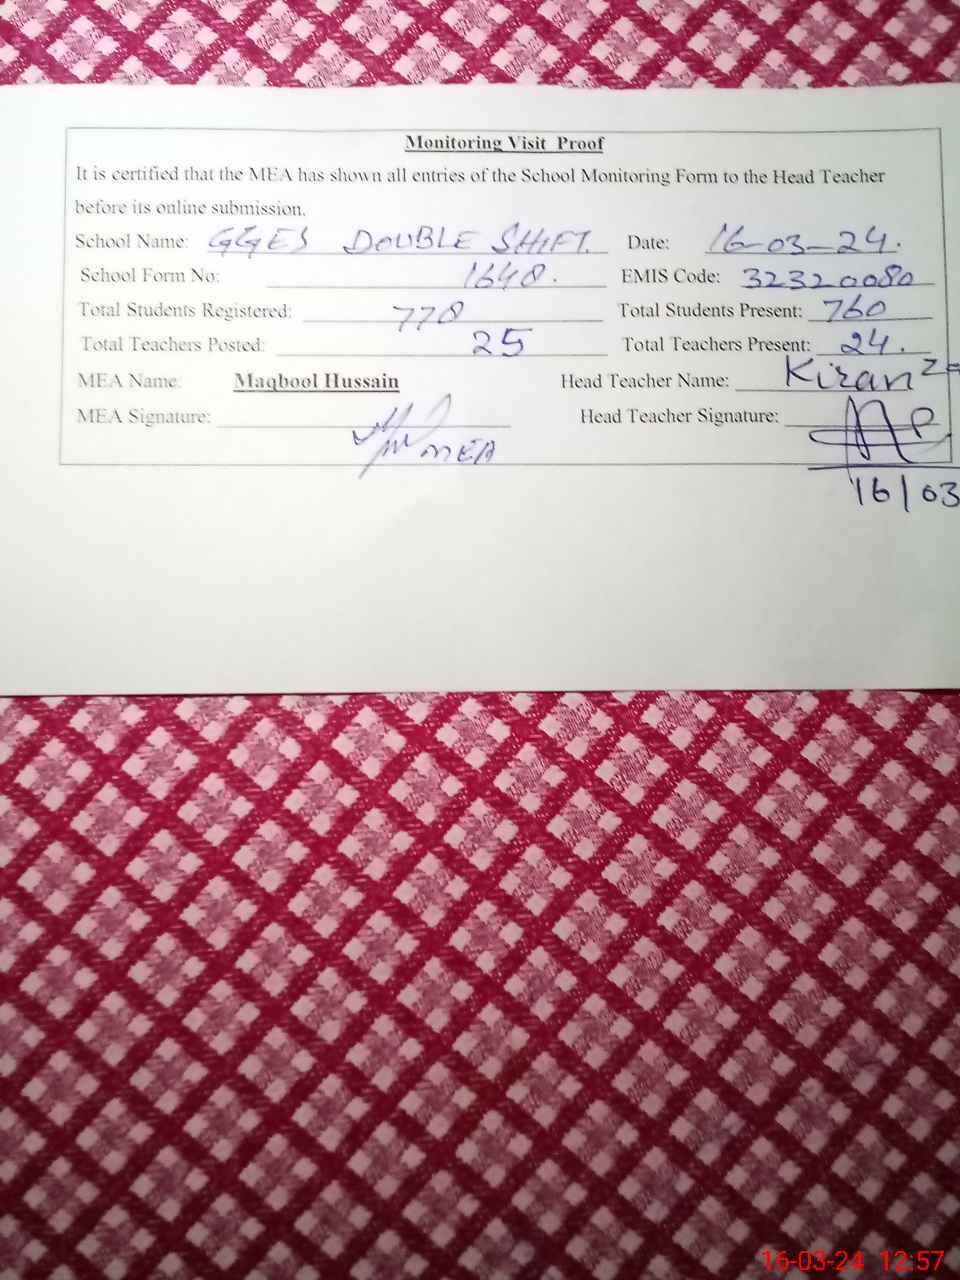 Monitoring Visit Proof
It is certified that the MEA has shown all entries of the School Monitoring Form to the Head Teacher
before its online submission.
School Name: GGES DOUBLE SHIFT. Date: 16-03-24.
School Form No: 1648. EMIS Code: 32320080
Total Students Registered: 778 Total Students Present: 760
Total Teachers Posted: 25 Total Teachers Present: 24.
MEA Name: Maqbool Hussain Head Teacher Name: Kiran
MEA Signature: MEA Head Teacher Signature:
16/03
16-03-24 12:57